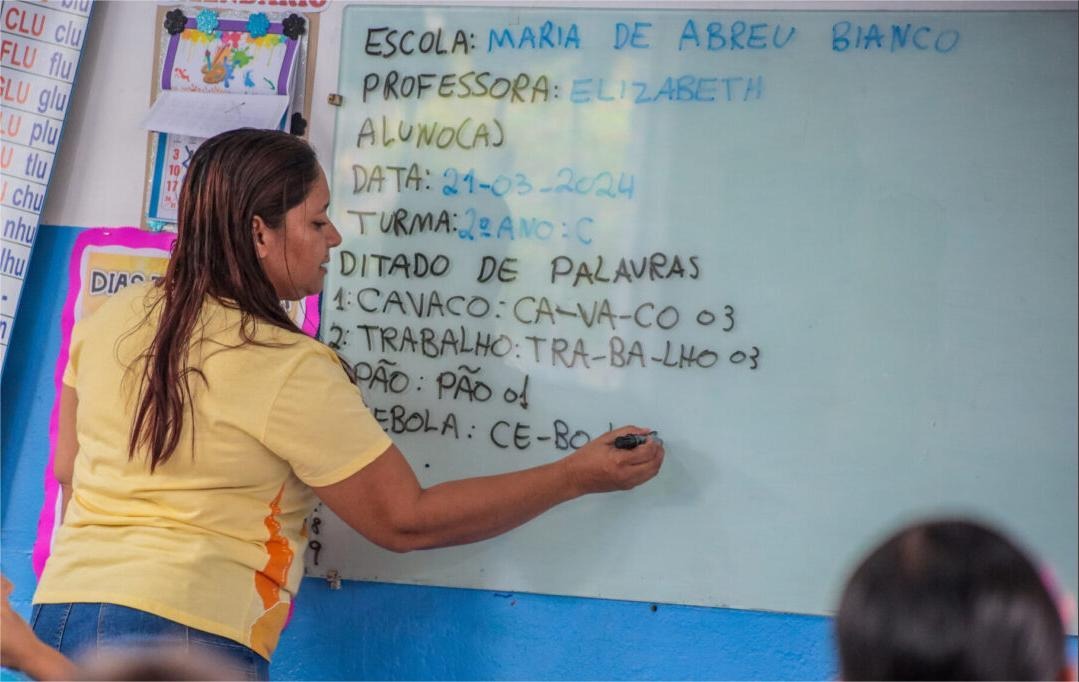 CLU clu
FLU flu
GLU glu
LU plu
U tlu
U chu
nhu
lhu
3
10
17
DIAS
ESCOLA: MARIA DE ABREU BIANCO
PROFESSORA: ELIZABETH
ALUNO(A)
DATA: 21-03-2024
TURMA: 2º ANO: C
DITADO DE PALAVRAS
1: CAVACO: CA-VA-CO 03
2: TRABALHO: TRA-BA-LHO 03
PÃO: PÃO 01
EBOLA: CE-BO
8
9